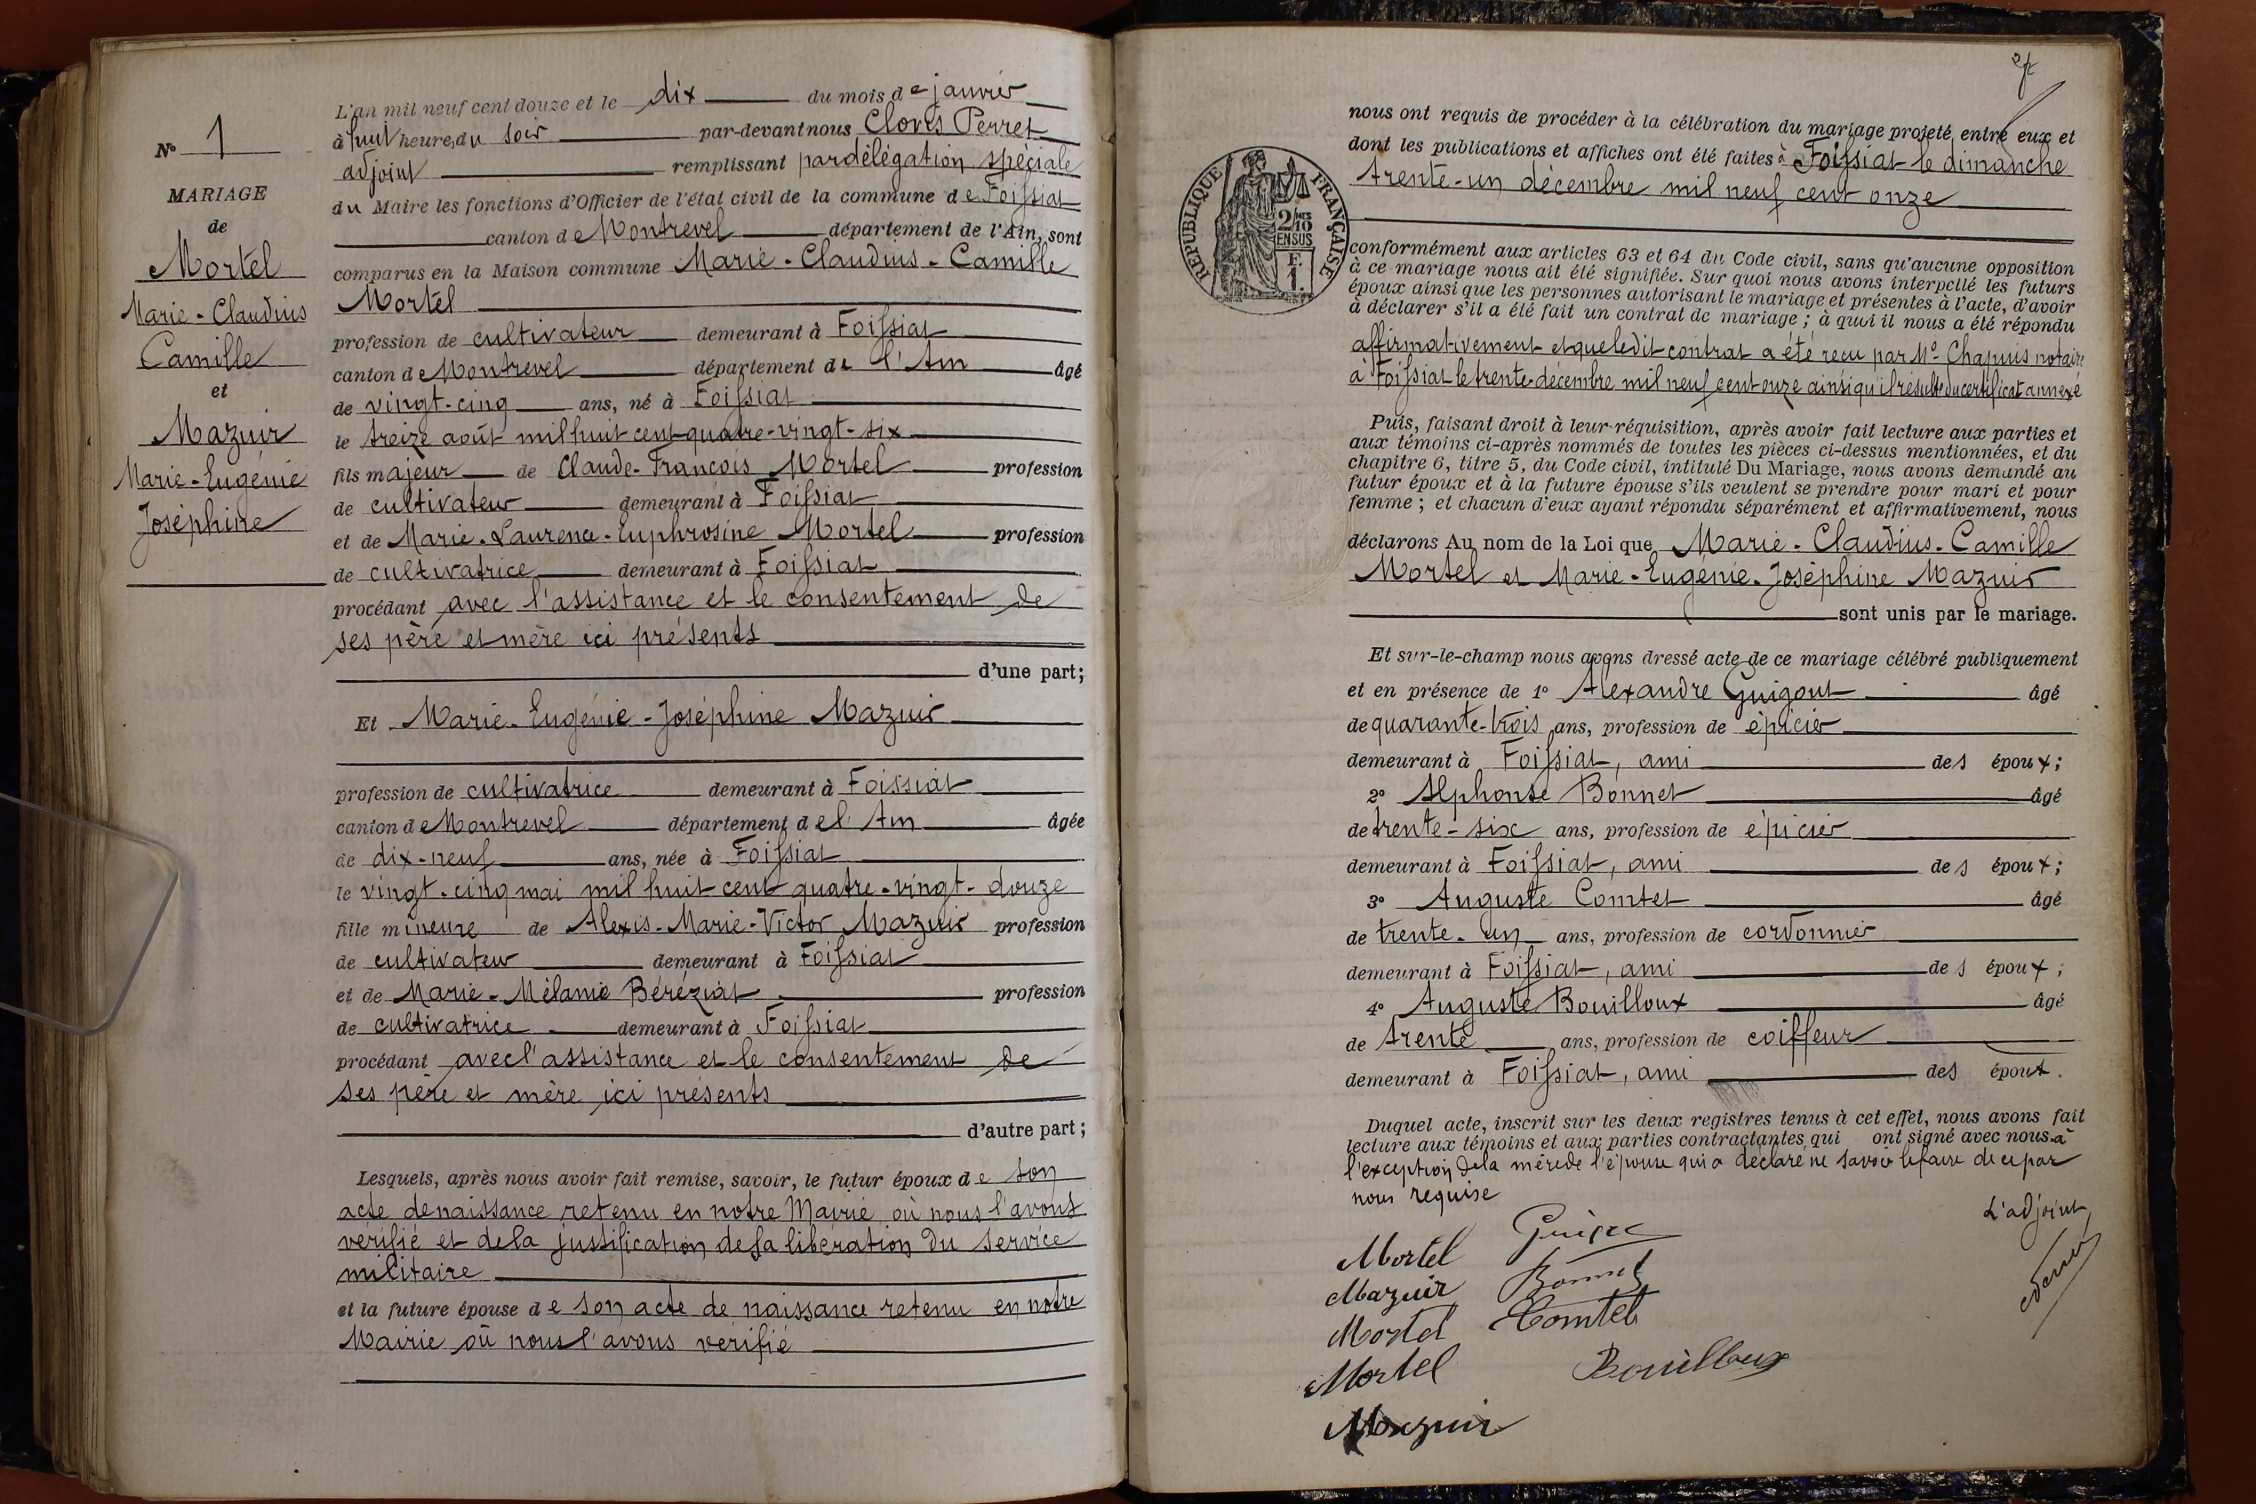 L'an mil neuf cent douze et le dix du mois de janvier
à huit heures du soir par-devant nous Clovis Perret
adjoint remplissant par délégation spéciale
du Maire les fonctions d'Officier de l'état civil de la commune de Foissiat
canton de Montrevel département de l'Ain, sont
comparus en la Maison commune Marie-Claudius-Camille
Mortel
profession de cultivateur demeurant à Foissiat
canton de Montrevel département de l'Ain âgé
de vingt-cinq ans, né à Foissiat
le treize août mil huit cent quatre-vingt-six
fils majeur de Claude-François Mortel profession
de cultivateur demeurant à Foissiat
et de Marie-Laurence-Euphrosine Mortel profession
de cultivatrice demeurant à Foissiat
procédant avec l'assistance et le consentement de
ses père et mère ici présents
d'une part;
Et Marie-Eugénie-Joséphine Mazuir
profession de cultivatrice demeurant à Foissiat
canton de Montrevel département de l'Ain âgée
de dix-neuf ans, née à Foissiat
le vingt-cinq mai mil huit cent quatre-vingt-douze
fille mineure de Alexis-Marie-Victor Mazuir profession
de cultivateur demeurant à Foissiat
et de Marie-Mélanie Béréziat profession
de cultivatrice demeurant à Foissiat
procédant avec l'assistance et le consentement de
ses père et mère ici présents
d'autre part;
Lesquels, après nous avoir fait remise, savoir, le futur époux de son
acte de naissance retenu en notre Mairie où nous l'avons
vérifié et de la justification de sa libération du service
militaire
et la future épouse de son acte de naissance retenu en notre
Mairie où nous l'avons vérifié
N° 1
MARIAGE
de
Mortel
Marie-Claudius
Camille
et
Mazuir
Marie-Eugénie
Joséphine
nous ont requis de procéder à la célébration du mariage projeté entre eux et
dont les publications et affiches ont été faites à Foissiat le dimanche
trente-un décembre mil neuf cent onze
RÉPUBLIQUE FRANÇAISE
2/10 MES
EN SUS
F.
1.
conformément aux articles 63 et 64 du Code civil, sans qu'aucune opposition
à ce mariage nous ait été signifiée. Sur quoi nous avons interpellé les futurs
époux ainsi que les personnes autorisant le mariage et présentes à l'acte, d'avoir
à déclarer s'il a été fait un contrat de mariage ; à quoi il nous a été répondu
affirmativement et que ledit contrat a été reçu par Me Chapuis notaire
à Foissiat le trente décembre mil neuf cent onze ainsi qu'il résulte du certificat annexé
Puis, faisant droit à leur réquisition, après avoir fait lecture aux parties et
aux témoins ci-après nommés de toutes les pièces ci-dessus mentionnées, et du
chapitre 6, titre 5, du Code civil, intitulé Du Mariage, nous avons demandé au
futur époux et à la future épouse s'ils veulent se prendre pour mari et pour
femme ; et chacun d'eux ayant répondu séparément et affirmativement, nous
déclarons Au nom de la Loi que Marie-Claudius-Camille
Mortel et Marie-Eugénie-Joséphine Mazuir
sont unis par le mariage.
Et sur-le-champ nous avons dressé acte de ce mariage célébré publiquement
et en présence de 1° Alexandre Guigout âgé
de quarante-trois ans, profession de épicier
demeurant à Foissiat, ami des époux;
2° Alphonse Bonnet âgé
de trente-six ans, profession de épicier
demeurant à Foissiat, ami des époux;
3° Auguste Comtet âgé
de trente-un ans, profession de cordonnier
demeurant à Foissiat, ami des époux;
4° Auguste Bouilloux âgé
de trente ans, profession de coiffeur
demeurant à Foissiat, ami des époux.
Duquel acte, inscrit sur les deux registres tenus à cet effet, nous avons fait
lecture aux témoins et aux parties contractantes qui ont signé avec nous à
l'exception de la mère de l'épouse qui a déclaré ne savoir le faire de ce par
nous requise
L'adjoint,
Mortel
Mazuir Bonnet
Mortel Comtet
Mortel Bouilloux
Mazuir